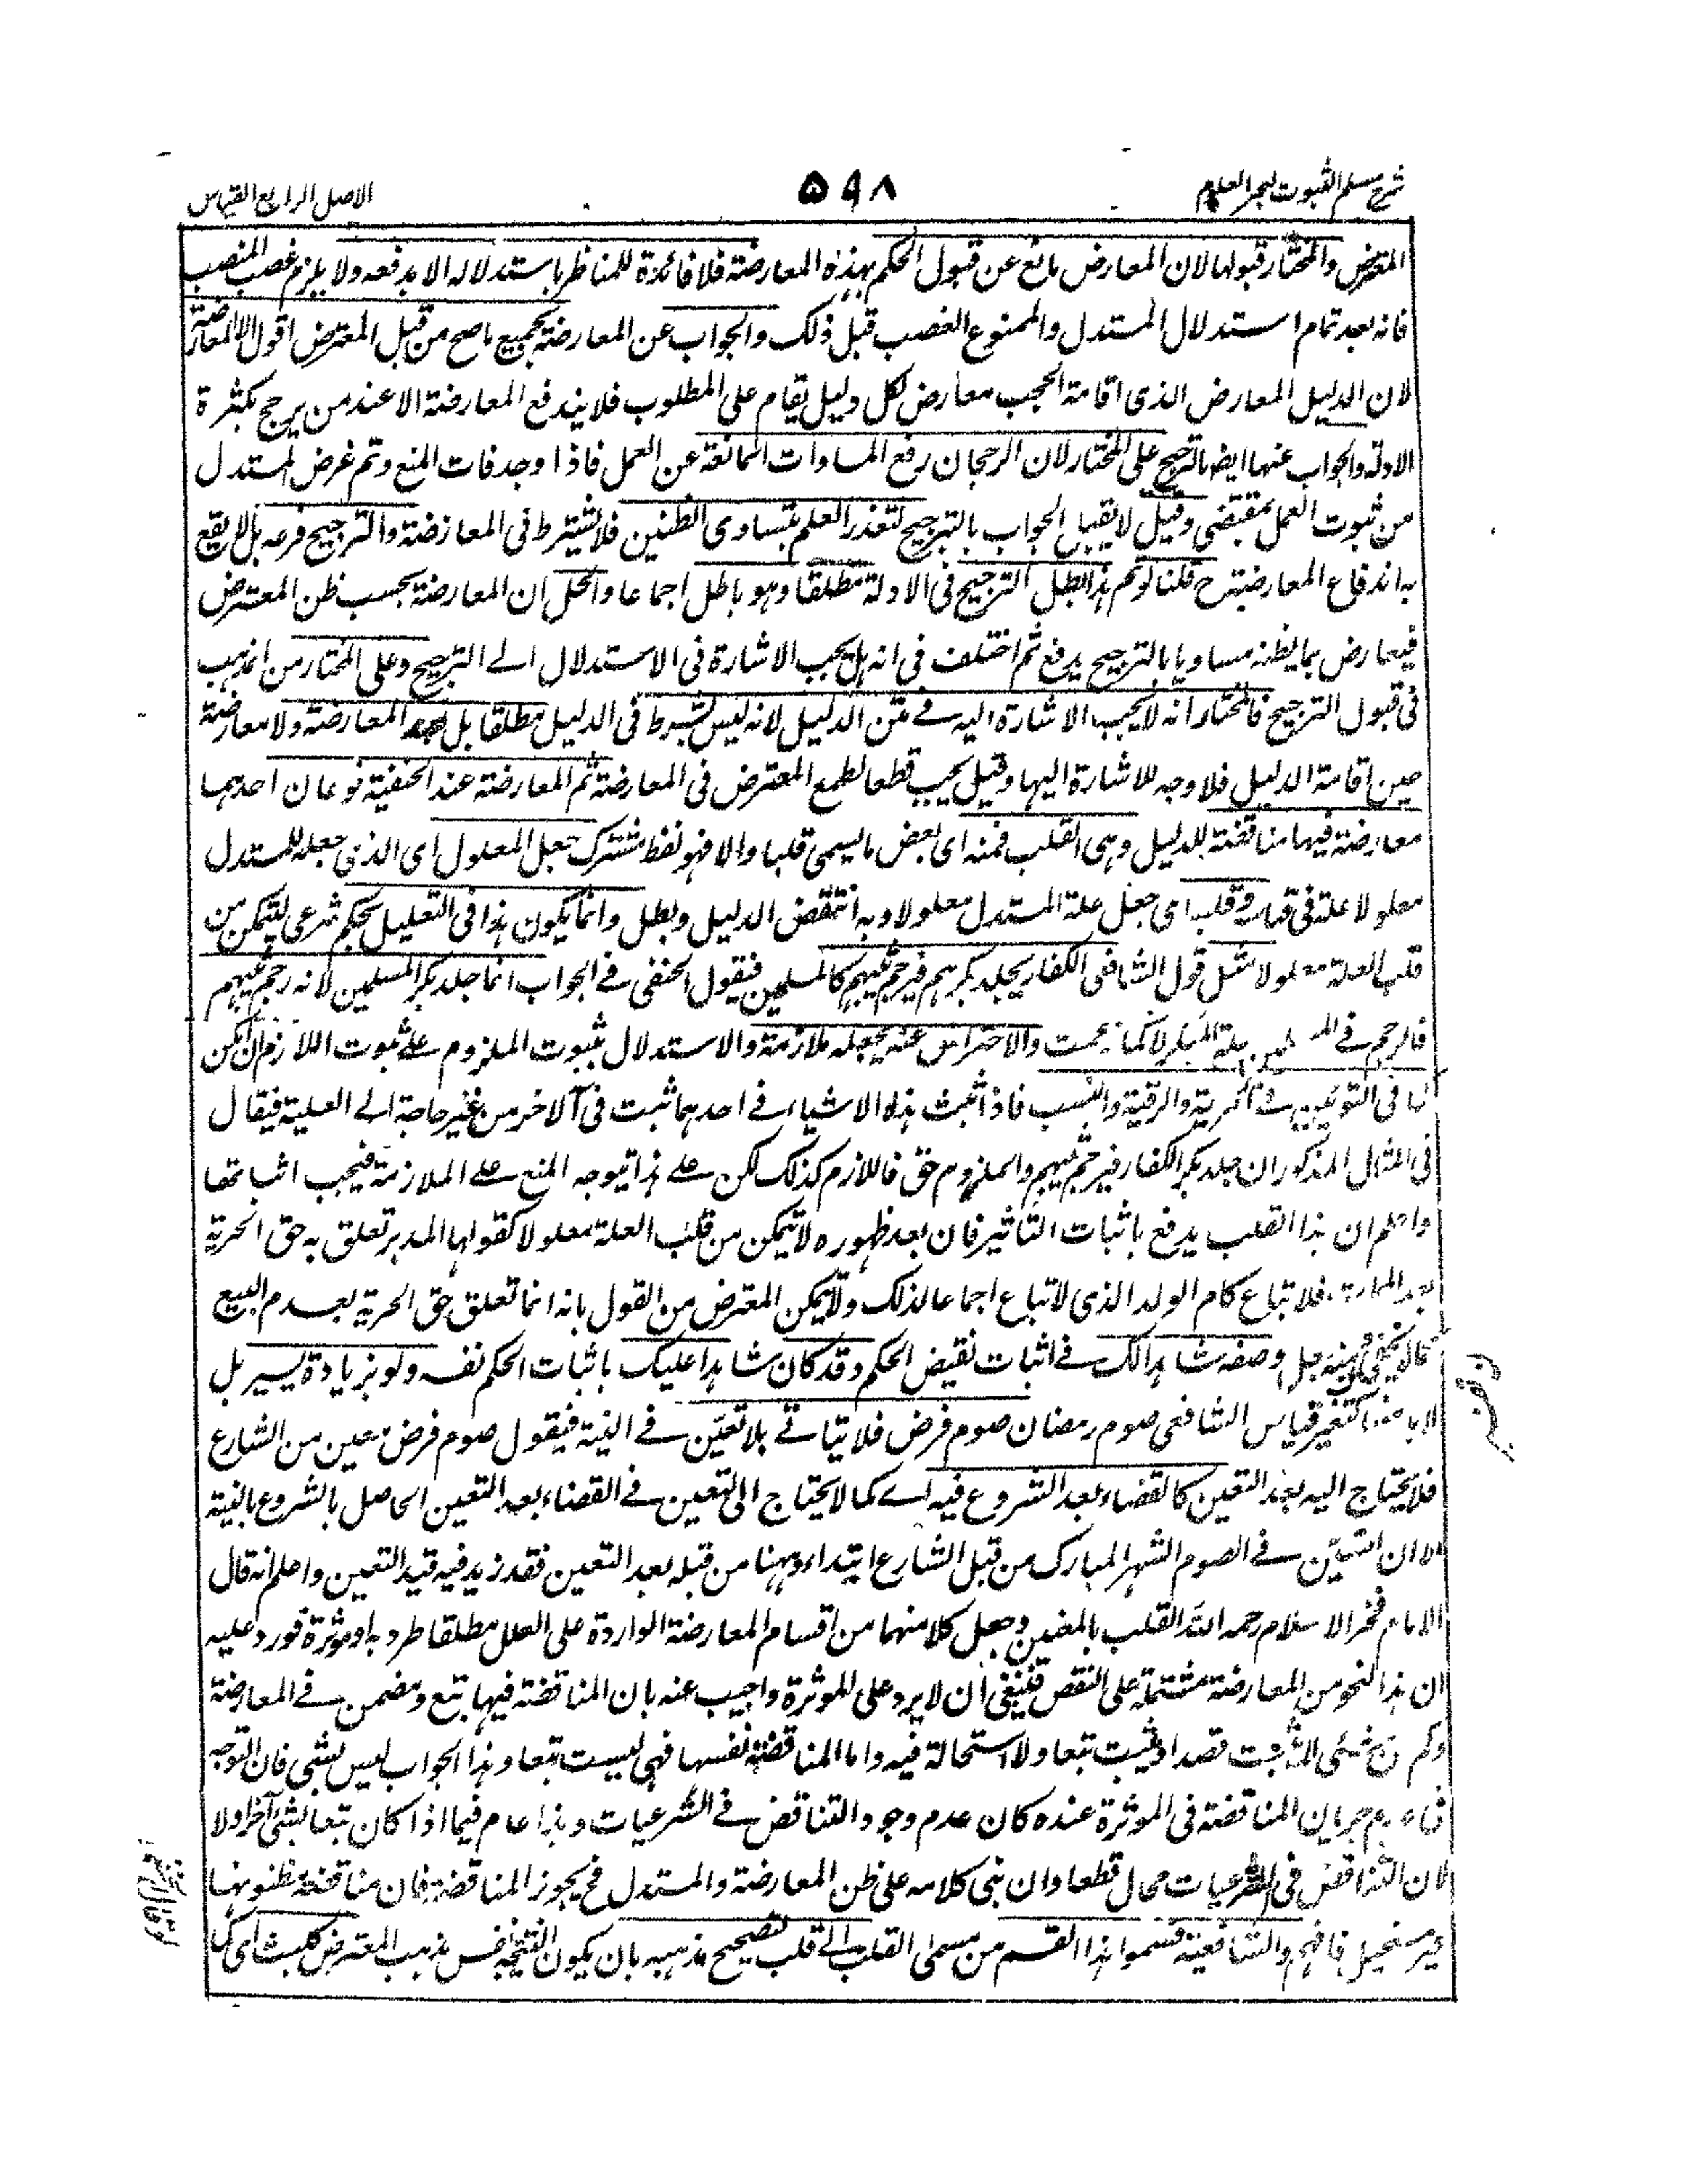 شرح مسلم الثبوت لبحر العلوم
۵۹۸
الاصل الرابع القياس
المعترض والمختار قبولها لان المعارض مانع عن قبول الحكم بهذه المعارضة فلا فائدة للمناظر باستدلاله الا بدفعه ولا يلزم غصب المنصب
فانه بعد تمام استدلال المستدل والممنوع الغصب قبل ذلك والجواب عن المعارضة بجميع ما صح من قبل المعترض اقول الا المعارضة
لان الدليل المعارض الذى اقامة المجيب معارض لكل دليل يقام على المطلوب فلا يندفع المعارضة الا عند من يرجح بكثرة
الادلة والجواب عنها ايضا بالترجيح على المختار لان الرجحان رفع المساوات المانعة عن العمل فاذا وجد فات المنع وتم غرض المستدل
من ثبوت العمل بمقتضى وقيل لا يقبل الجواب بالترجيح لتعذر العلم بتساوى الظنين فلا يشترط فى المعارضة والترجيح فرعه بل لا يقع
به اندفاع المعارضة ح قلنا لو تم هذا لبطل الترجيح فى الادلة مطلقا وهو باطل اجماعا والحل ان المعارضة بحسب ظن المعترض
فيعارض بما يظنه مساويا بالترجيح يدفع ثم اختلف فى انه هل يجب الاشارة فى الاستدلال الى الترجيح وعلى المختار من المذهب
فى قبول الترجيح فالمختار انه لا يجب الاشارة اليه فى متن الدليل لانه ليس بشرط فى الدليل مطلقا بل بعد المعارضة ولا معارضة
حين اقامة الدليل فلا وجه للاشارة اليها وقيل يجب قطعا لطمع المعترض فى المعارضة ثم المعارضة عند الحنفية نوعان احدهما
معارضة فيها مناقضة للدليل وهى القلب فمنه اى بعض ما يسمى قلبا والا فهو لفظ مشترك جعل المعلول اى الذى جعله المستدل
معلولا علة فى قياسه وقلبه اى جعل علة المستدل معلولا وبه انتقض الدليل وبطل وانما يكون هذا فى التعليل بحكم شرعى ليتمكن من
قلب العلة معلولا مثل قول الشافعى الكفار يجلد بكرهم فيرجم ثيبهم كالمسلمين فيقول الحنفى فى الجواب انما جلد بكر المسلمين لانه رجم ثيبهم
فالرجم فى علة لا كما زعمت والاحتراس عنه بجعله ملازمة والاستدلال بثبوت الملزوم على ثبوت اللازم ان امكن
كما فى التوئمين فى الحرية والرقية والنسب فاذا ثبت هذه الاشياء فى احدهما ثبت فى الآخر من غير حاجة الى العلية فيقال
فى المثال المذكور ان جلد بكر الكفار فيرجم ثيبهم والملزوم حق فاللازم كذلك لكن على هذا يتوجه المنع على الملازمة فيجب اثباتها
واعلم ان هذا القلب يدفع باثبات التأثير فان بعد ظهوره لا يتمكن من قلب العلة معلولا كقولها المدبر تعلق به حق الحرية
بعد الموت فلا تباع كام الولد الذى لاتباع اجماعا لذلك ولا يتمكن المعترض من القول بانه انما تعلق حق الحرية لعدم البيع
كما لا يخفى ومنه جعل وصفه شاهدا لك فى اثبات نقيض الحكم وقد كان شاهدا عليك باثبات الحكم نفسه ولو بزيادة يسير بل
قياس الشافعى صوم رمضان صوم فرض فلا يتاتى بلا تعيّن فى النية فيقول صوم فرض معين من الشارع
فلا يحتاج اليه بعد التعين كالقضاء بعد الشروع فيه اى كما لا يحتاج الى التعين فى القضاء بعد التعين الحاصل بالشروع بالنية
الا ان التعيّن فى الصوم الشهر المبارك من قبل الشارع ابتداء وههنا من قبله بعد التعين فقد زيد فيه قيد التعين واعلم انه قال
الامام فخر الاسلام رحمه الله القلب بالمعنيين وجعل كلا منهما من اقسام المعارضة الواردة على العلل مطلقا طردية او مؤثرة فورد عليه
ان هذا النحو من المعارضة مشتملة على النقض فينبغى ان لا يرد على المؤثرة واجيب عنه بان المناقضة فيها تبع ومضمن فى المعارضة
وكم من شئ لا يثبت قصدا ويثبت تبعا ولا استحالة فيه واما المناقضة نفسها فهى ليست تبعا وهذا الجواب ليس بشئ فان التوجه
عدم جريان المناقضة فى المؤثرة عنده كان عدم وجود التناقض فى الشرعيات وهذا عام فيما اذا كان تبعا لشئ آخر او لا
لان التناقض فى الشرعيات محال قطعا وان بنى كلامه على ظن المعارضة والمستدل فح يجوز المناقضة فان مناقضة مظنونها
غير مستحيل فافهم والشافعية قسموا هذا القسم من مسمى القلب الى قلب لتصحيح مذهبه بان يكون النتيجة نفس مذهب المعترض كلبث اى كما